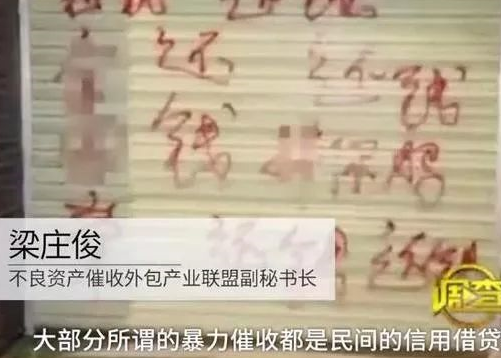 还 还钱
钱
还钱 还钱
梁庄俊
不良资产催收外包产业联盟副秘书长
调查
大部分所谓的暴力催收都是民间的信用借贷